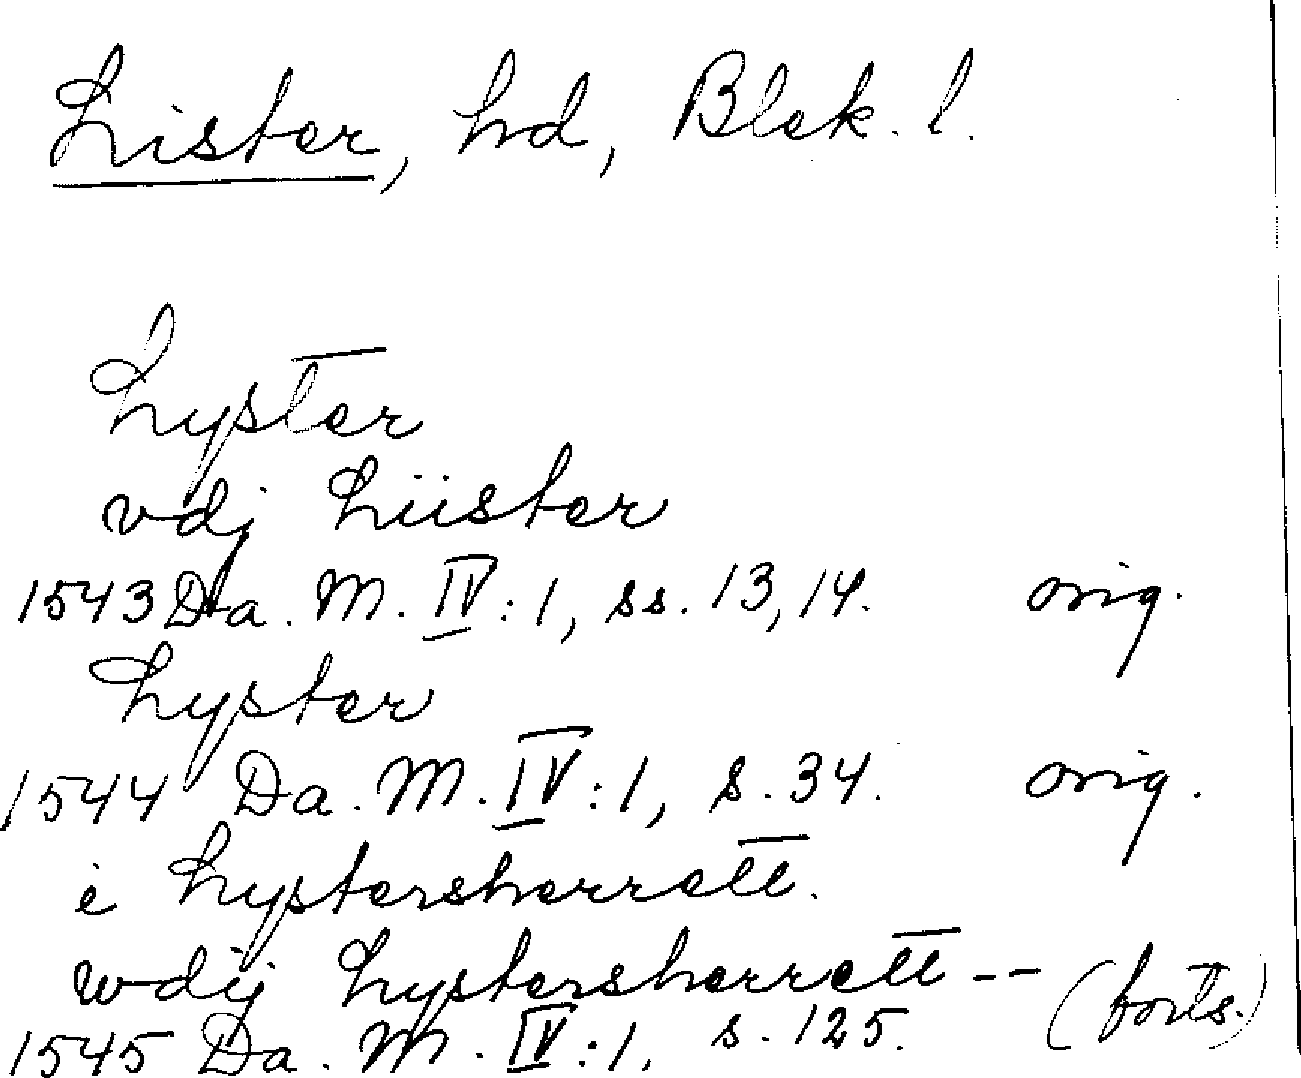 Lister, hd, Blek. l.
Lyster
vdj Liister
1543 Da. M. IV:1, ss. 13, 14. orig.
Lyster
1544 Da. M. IV:1, s. 34. orig.
i Lystersherrett.
wdij Lystersherrett -- (forts.)
1545 Da. M. IV:1, s. 125.